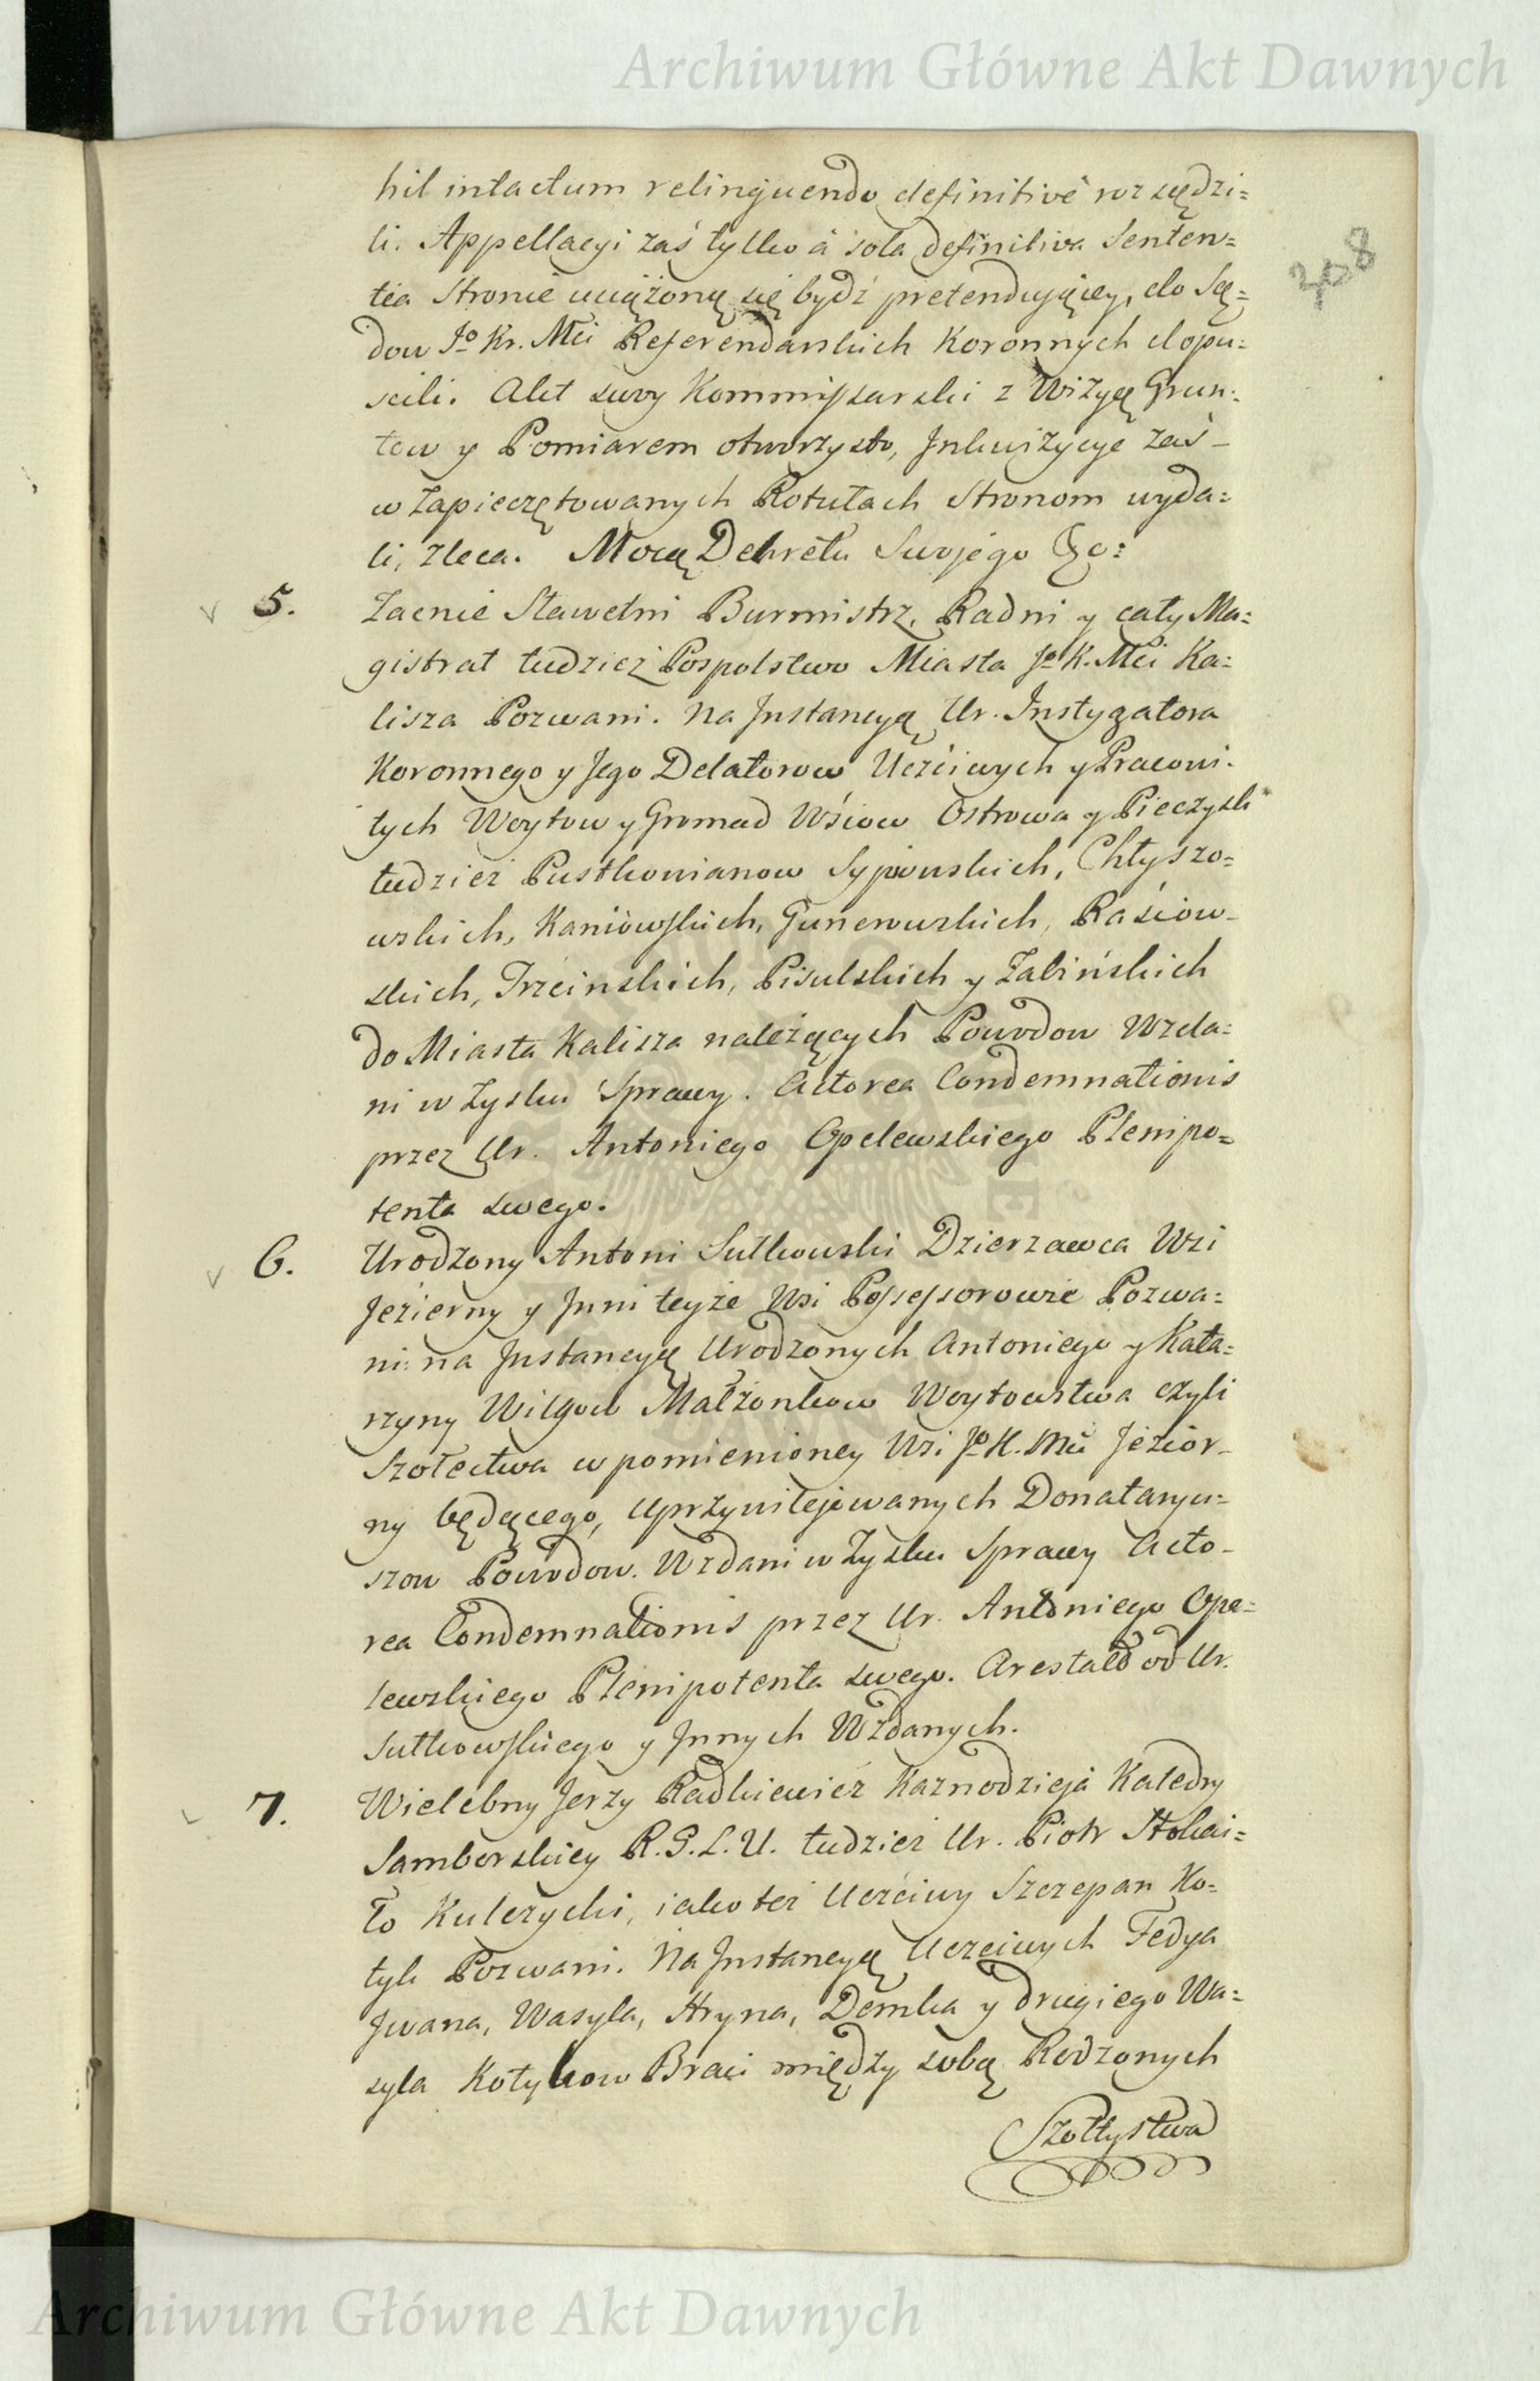 Archiwum Główne Akt Dawnych
408
hil intactum relinquendo definitivè rozsądzi=
li. Appellacyi zaś tylko à sola definitiva Senten=
tia Stronie uciążoną się bydź pretendującey, do Są=
dow Jo Kr. Mci Referendarskich Koronnych dopu=
scili. Akt swoy Kommissarski z Wizyą Grun=
tow y Pomiarem otworzysto, Inkwizycye zaś
w zapieczętowanych Rotułach Stronom wyda=
li, zleca. Mocą Dekretu Swojego &c:
5. Zacnie Sławetni Burmistrz, Radni y cały Ma=
gistrat tudziez Pospolstwo Miasta Jo K. Mci Ka=
lisza Pozwani. Na Instancyą Ur. Instygatora
Koronnego y Jego Delatorow Uczciwych y Pracowi=
tych Woytow y Gromad Wsiow Ostrowa y Pieczysk
tudziez Pustkowianow Sypiowskich, Chłyszo=
wskich, Kaniowskich, Gunerowskich, Rasiow=
skich, Trzcinskich, Pisulskich y Zabińskich
do Miasta Kalisza należących Powodow Wzda=
ni w Zysku Sprawy. Actorea Condemnationis
przez Ur. Antoniego Opelewskiego Plenipo=
tenta swego.
6. Urodzony Antoni Sutkowski Dzierzawca Wsi
Jezierny y Inni teyże Wsi Possessorowie Pozwa=
ni na Instancyą Urodzonych Antoniego y Kata=
rzyny Wilgow Małżonkow Woytowstwa czyli
Szołectwa w pomienioney Wsi Jo K. Mci Jezior=
ny będącego, uprzywilejowanych Donataryu=
szow Powodow. Wzdani w Zysku Sprawy Acto=
rea Condemnationis przez Ur. Antoniego Ope=
lewskiego Plenipotenta swego. Arestałd od Ur.
Sutkowskiego y Innych Wzdanych.
7. Wielebny Jerzy Radkiewicz Kaznodzieja Katedry
Samborskiey R. G. L. U. tudziez Ur. Piotr Stokai=
ło Kulczycki, iako też Uczciwy Szczepan Ko=
tyk Pozwani. Na Instancyą Uczciwych Fedya
Iwana, Wasyla, Hryna, Demka y drugiego Wa=
syla Kotykow Braci między sobą Rodzonych
Szołtystwa
Archiwum Główne Akt Dawnych